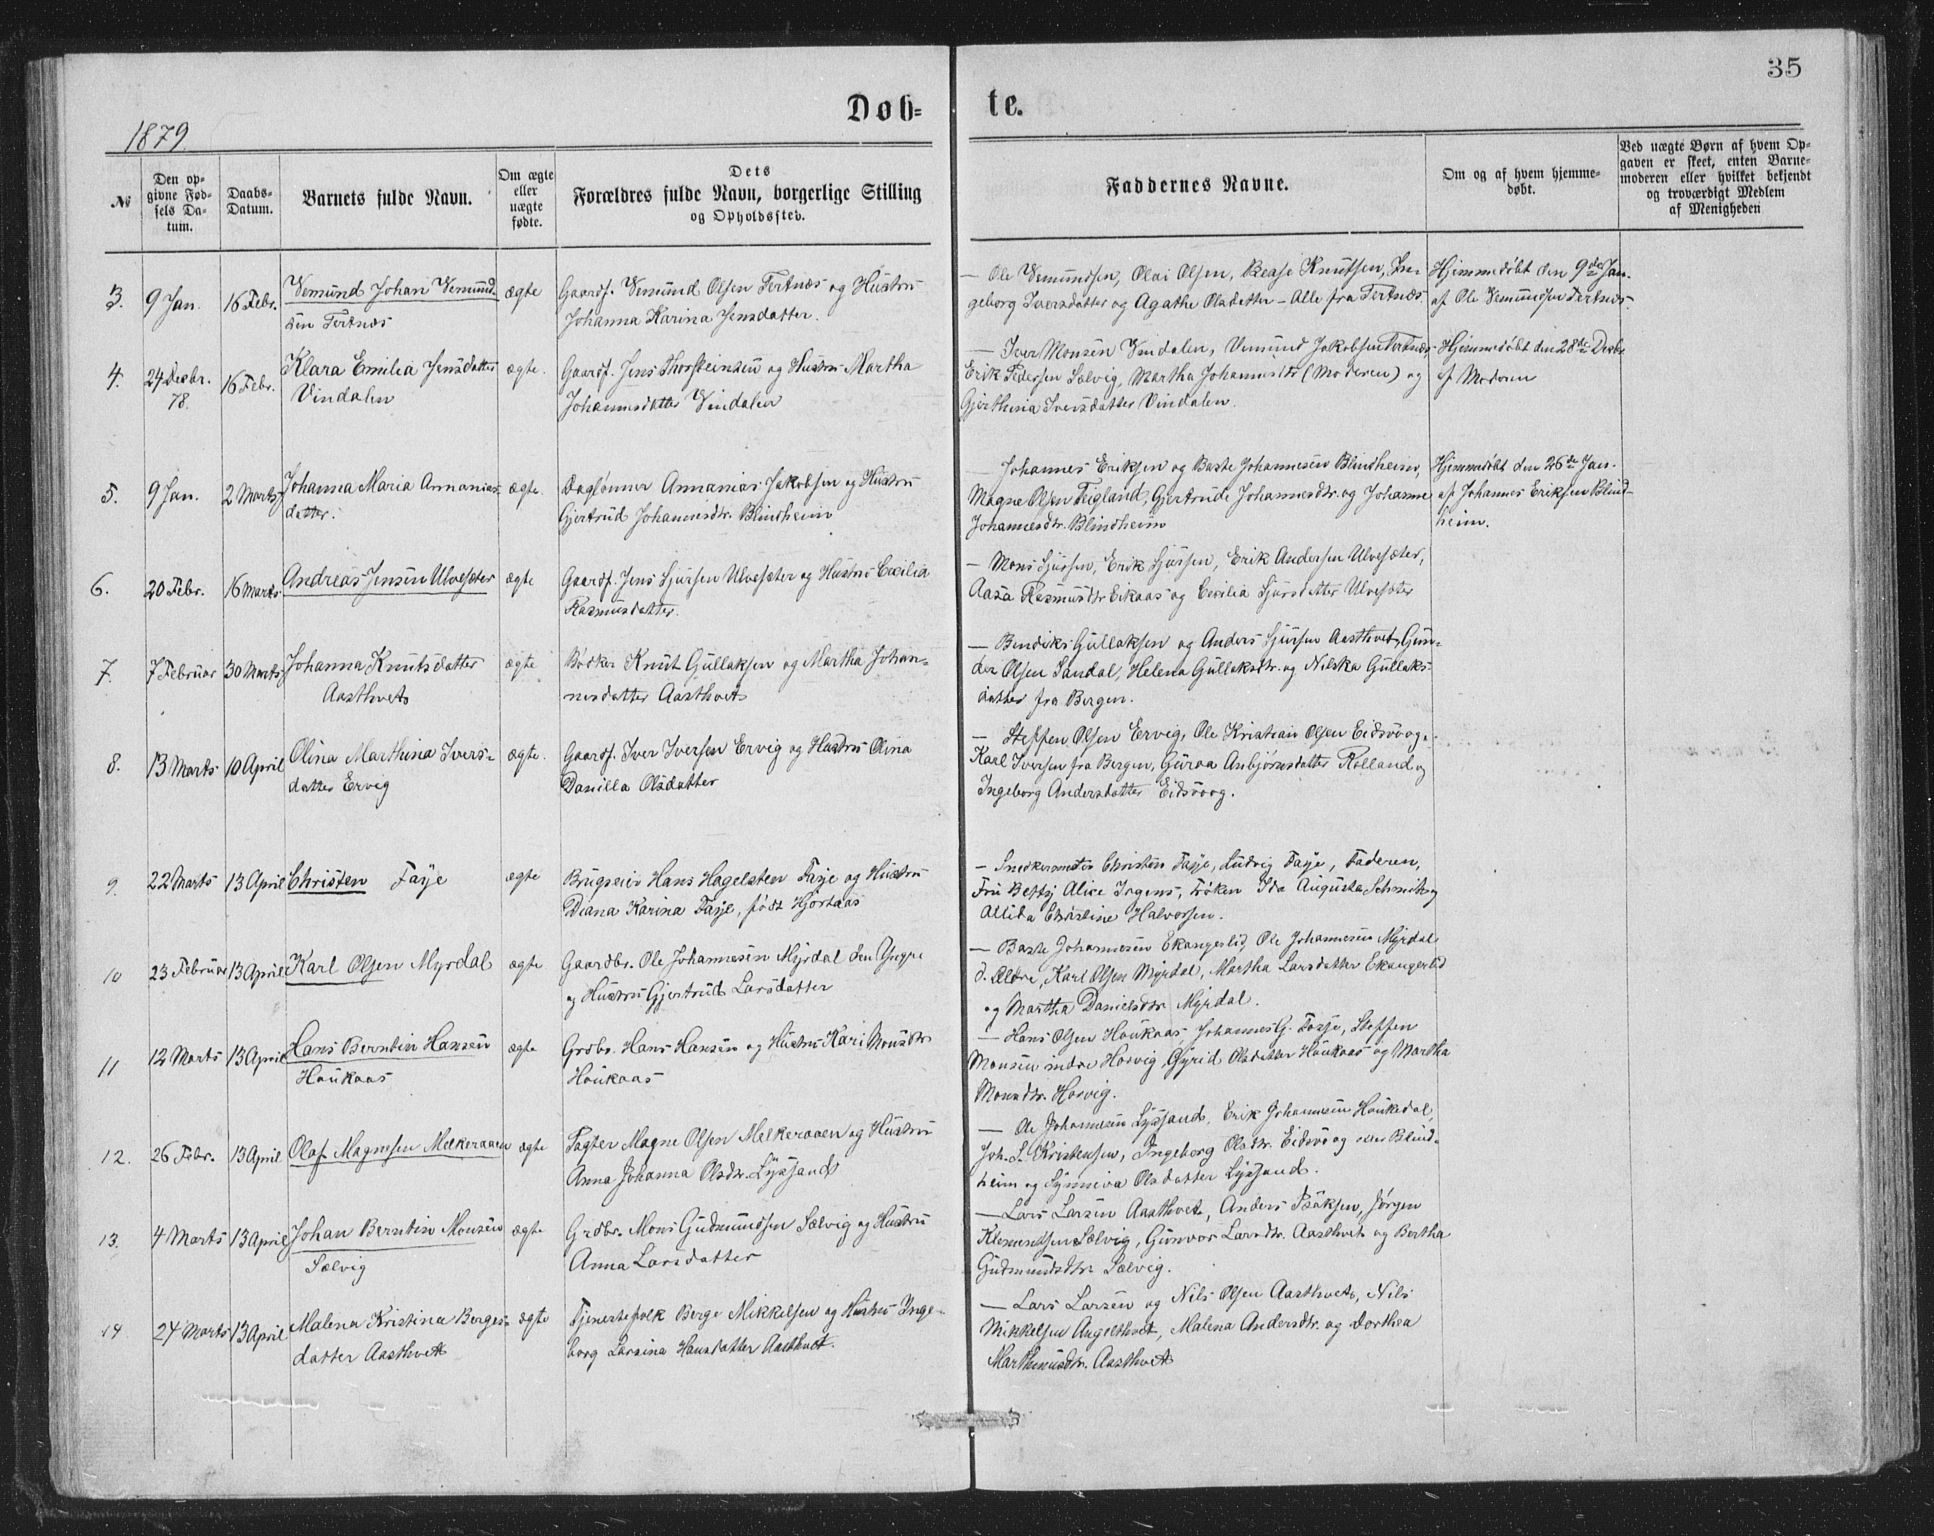 35
Døb-
te.
1879.
№
Den op-
givne Fød-
sels Da-
tum.
Daabs-
Datum.
Barnets fulde Navn.
Om ægte
eller
uægte
fødte.
Dets
Forældres fulde Navn, borgerlige Stilling
og Opholdssted.
Faddernes Navne.
Om og af hvem hjemme-
døbt.
Ved uægte Børn af hvem Op-
gaven er skeet, enten Barne-
moderen eller hvilket bekjendt
og troværdigt Medlem
af Menigheden
3. 9 Jan. 16 Febr. Vemund Johan Vemund-
sen Tertnæs
ægte
Gaardf. Vemund Olsen Tertnæs og Hustru
Johanna Karina Jensdatter.
— Ole Vemundsen, Olai Olsen, Knutsen, In-
geborg Iversdatter og Agathe Olsdatter – Alle fra Tertnæs
Hjemmedøbt den 9de Jan.
af Ole Vemundsen Tertnæs.
4. 24 Decbr.
78.
16 Febr.
Klara Emilia Jensdatter
Vindalen
ægte.
Gaardf. Jens Thorsteinsen og Hustru Martha
Johannesdatter Vindalen
— Iver Monsen Vindalen, Vemund Jakobsen Tertnæs,
Erik Pedersen Sælvig, Martha Johannesdtr (Moderen) og
Gjerthina Iversdatter Vindalen.
Hjemmedøbt den 28de Decbr
af Moderen
5. 9 Jan. 2 Marts Johanna Maria Annanias-
datter.
ægte.
Daglønner Annanias Jakobsen og Hustru
Gjertrud Johannesdtr. Blindheim
— Johannes Eriksen og Baste Johannesen Blindheim,
Magne Olsen Teigland, Gjertrude Johannesdtr. og Johanne
Johannesdtr. Blindheim
Hjemmedøbt den 26de Jan.
af Johannes Eriksen Blind-
heim.
6. 20 Febr. 16 Marts Andreas Jensen Ulvesæter ægte
Gaardf. Jens Sjursen Ulvesæter og Hustru Cecilia
Rasmusdatter.
— Mons Sjursen, Erik Sjursen, Erik Andersen Ulvesæter,
Aasa Rasmusdtr Eikaas og Cecilia Sjursdatter Ulvesæter
7. 7 Februar 30 Marts Johanna Knutsdatter
Aasthvet
ægte
Bødker Knut Gullaksen og Martha Johan-
nesdatter Aasthvet
— Bendiks Gullaksen og Anders Sjursen Aasthvet, Gun-
der Olsen Sandal, Helena Gullaksdtr. og Nilska Gullaks-
datter fra Bergen.
8. 13 Marts 10 April Olina Marthina Ivers-
datter Ervig
ægte.
Gaardf. Iver Iversen Ervig og Hustru Olina
Danilla Olsdatter
— Steffen Olsen Ervig, Ole Kristian Olsen Eidsvaag,
Karl Iversen fra Bergen, Guroa Anbjørnsdatter Rolland og
Ingeborg Andersdatter Eidsvaag.
9. 22 Marts 13 April Christen Fasje ægte
Brugseier Hans Hagelsten Fasje og Hustru
Diana Karina Fasje, født Hjortaas
— Snedkermester Christen Fasje, Ludvig Fasje, Faderen,
Fru Betty Alice Irgens, Frøken Ida Augusta Schmit og
Allida Christine Halvorsen.
10 23 Februar 13 April Karl Olsen Myrdal ægte
Gaardbr. Ole Johannesen Myrdal den Yngre
og Hustru Gjertrud Larsdatter
— Baste Johannesen Ekangerlid, Ole Johannesen Myrdal
d. Ældre, Karl Olsen Myrdal, Martha Larsdatter Ekangerlid
og Martha Danielsdtr. Myrdal.
11 12 Marts 13 April Hans Berntin Hansen
Haukaas
ægte
Grdbr. Hans Hansen og Hustru Kari Monsdtr
Haukaas
— Hans Olsen Haukaas, Johannes G. Fasje, Steffen
Monsen indre Horvig, Gyrid Olsdatter Haukaas og Martha
Monsdtr. Horvig.
12. 26 Febr. 13 April Olaf Magnesen Melkeraaen ægte
Pagter Magne Olsen Melkeraaen og Hustru
Anna Johanna Olsdtr. Lyssand
— Ole Johannesen Lyssand, Erik Johannesen Haukedal,
Joh. L. Kristensen, Ingeborg Olsdtr. Eidsvaag Blind-
heim og Synneva Olsdatter Lyssand.
13. 4 Marts 13 April Johan Berntin Monsen
Sælvig
ægte
Grdbr. Mons Gudmundsen Sælvig og Hustru
Anna Larsdatter
— Lars Larsen Aasthvet, Anders Isaksen, Jørgen
Klementsen Sælvig, Gunvor Larsdtr. Aasthvet og Bertha
Gudmundsdtr Sælvig.
14 24 Marts 13 April Malena Kristina Berges-
datter Aasthvet
ægte
Tjenestefolk Berge Mikkelsen og Hustru Inge-
borg Larsina Hansdatter Aasthvet.
— Lars Larsen og Nils Olsen Aasthvet, Nils
Mikkelsen Angelthvet, Malena Andersdtr. og Dorthea
Marthinusdtr. Aasthvet